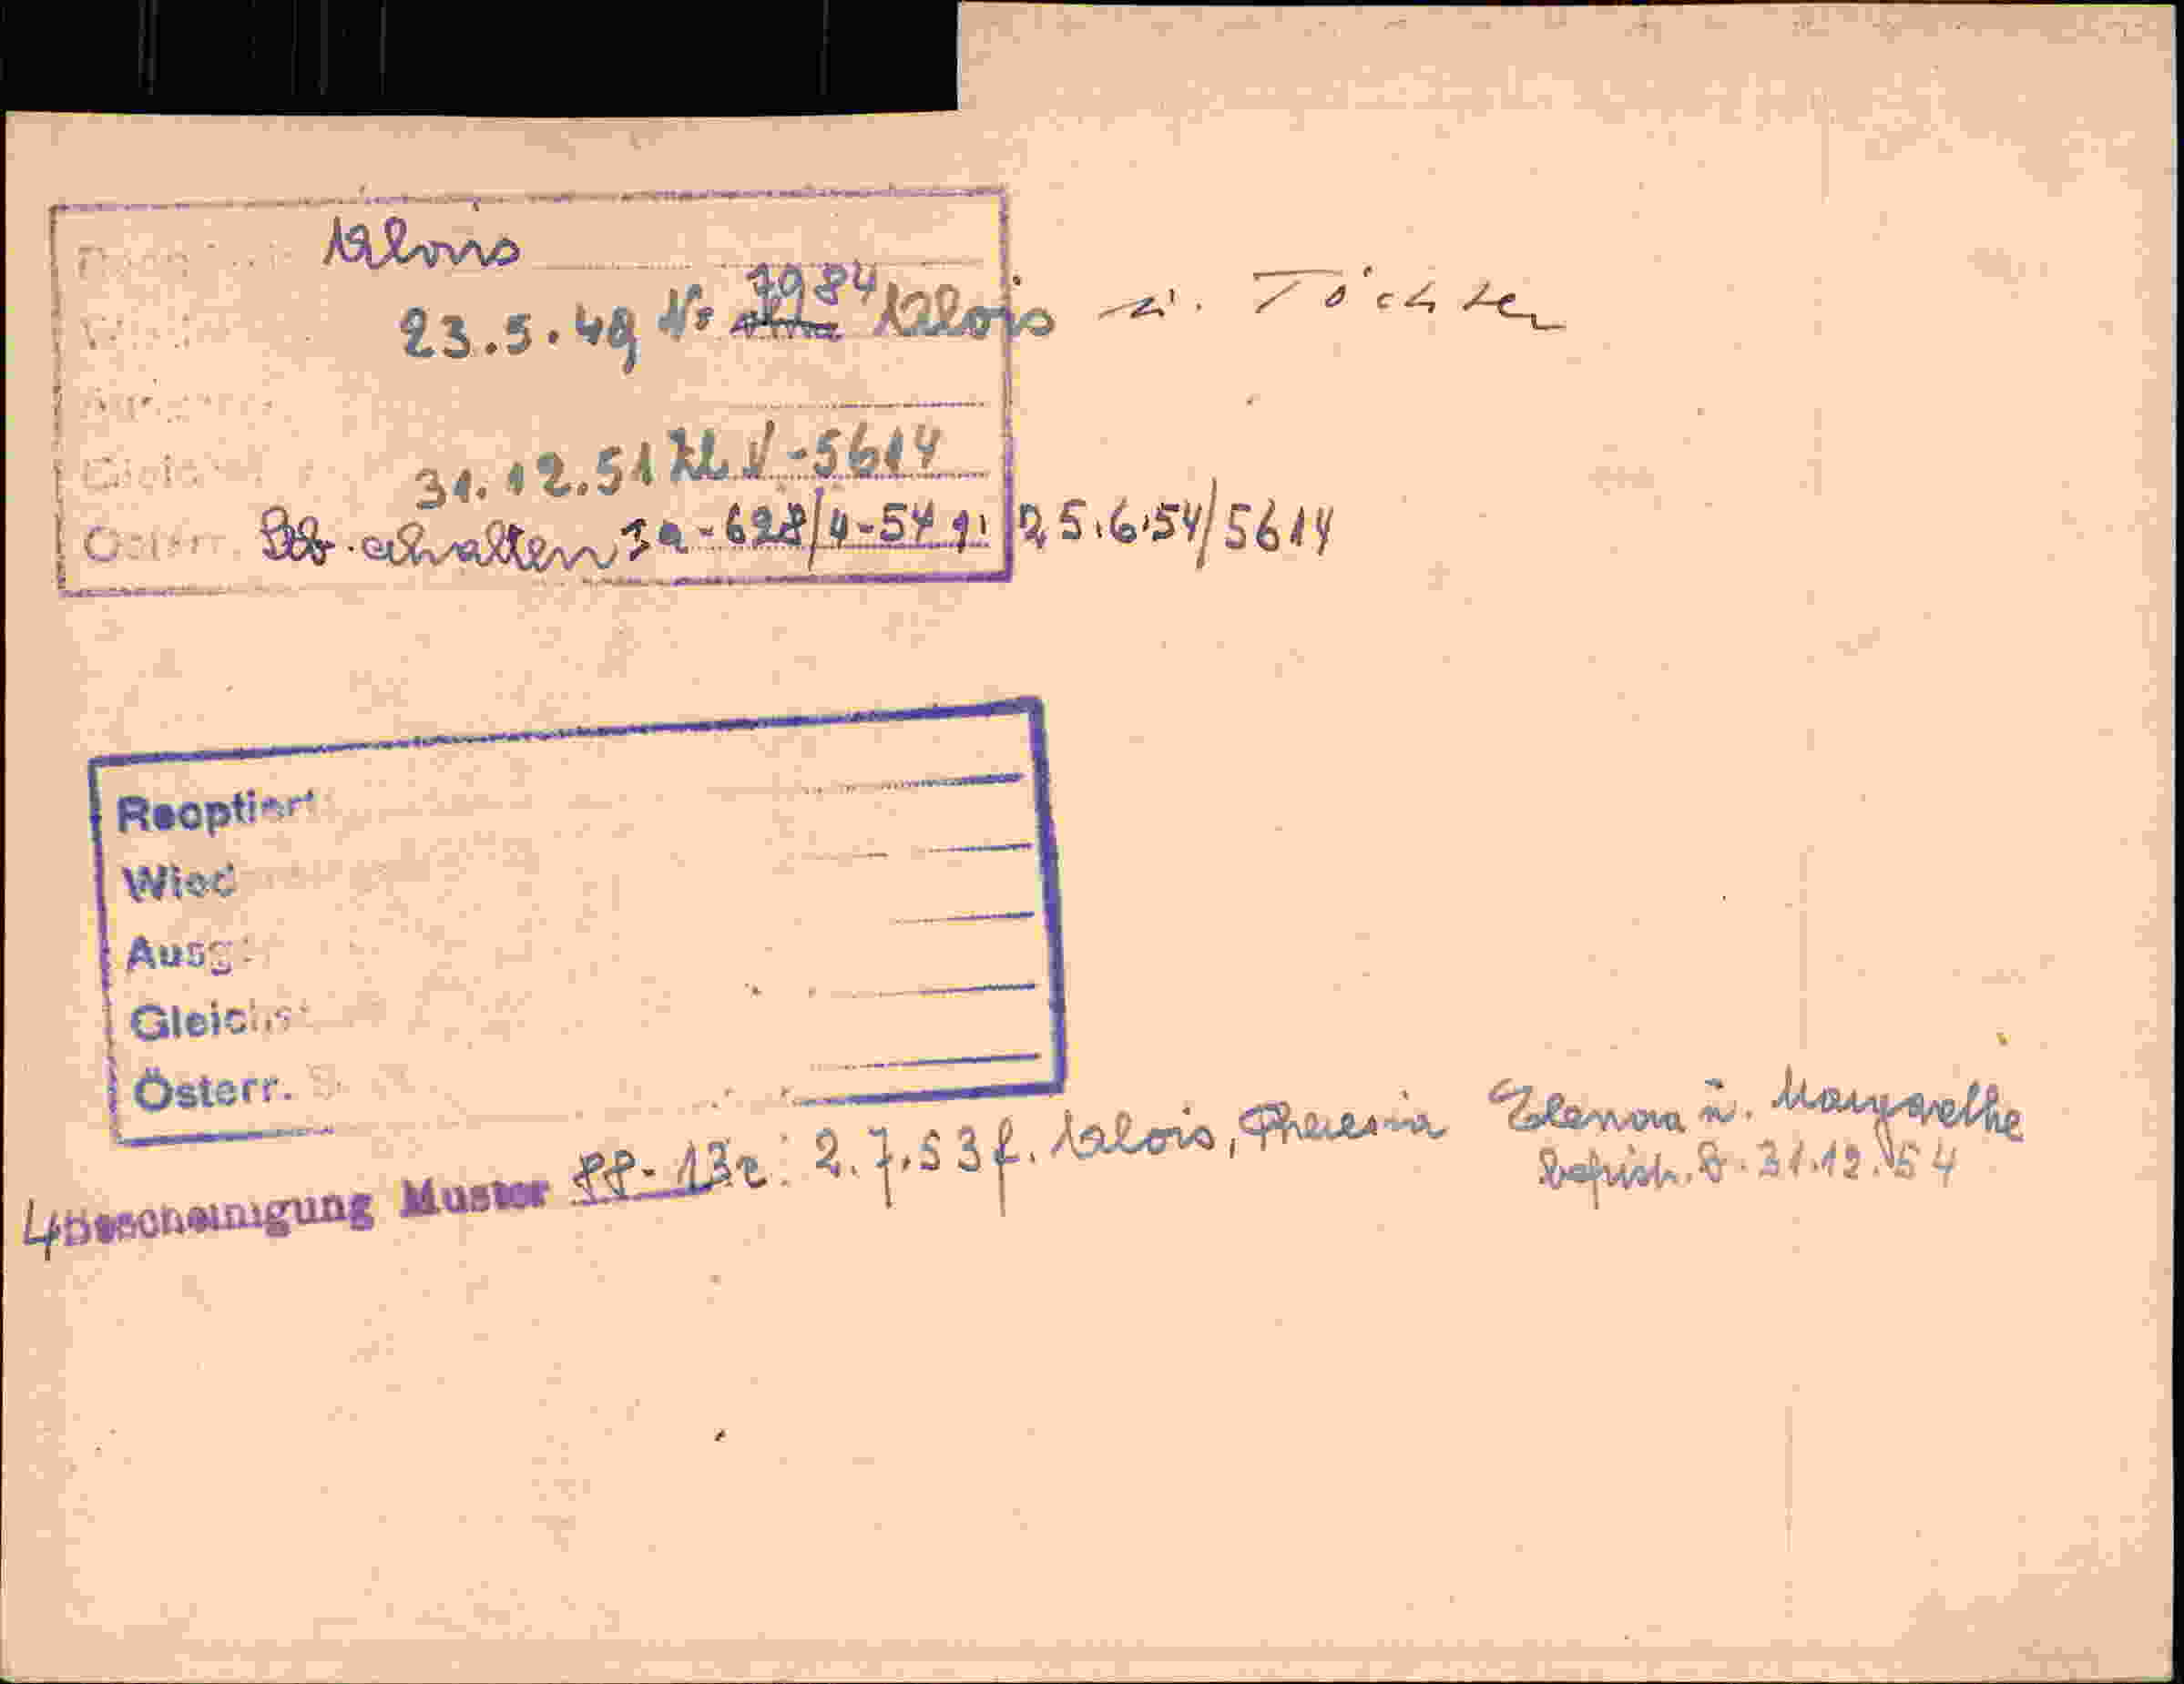 Alois
23.5.49 No 7984 Alois u. Töchter
31.12.51 Zl V-5614
Stb. erhalten Ia-628/4-54 25.6.54/5614
Reoptiert
Wied
Ausg
Gleichs
Österr.
4 Bescheinigung Muster 88-13e: 2.7.53 f. Alois, Theresia Elenora u. Margarethe
befrist. b. 31.12.54